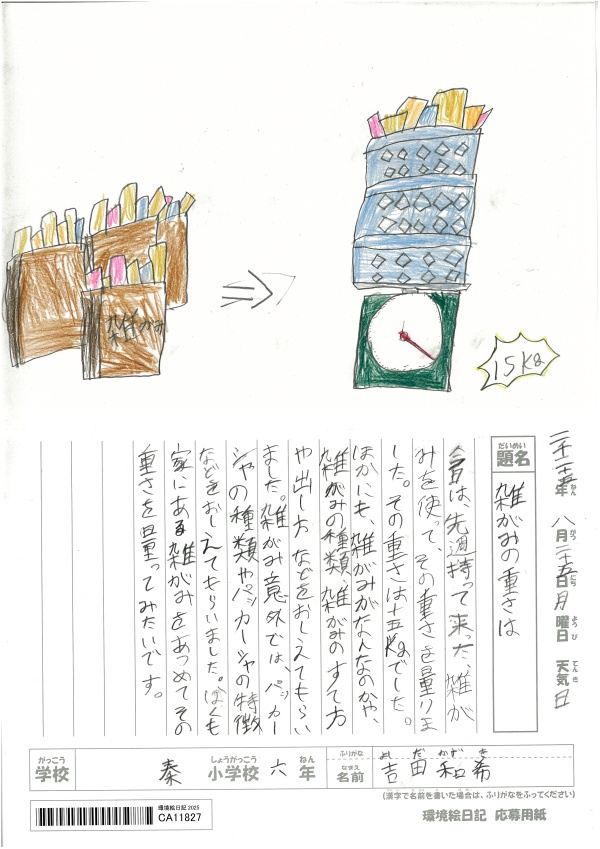 雑がみ
15Kg
二千二十五年 八月二十五日 月曜日 天気
ねん がつ にち ようび てんき
だいめい
題名
雑がみの重さは
今日は、先週持って来った、雑が
みを使って、その重さを量りま
した。その重さは十五Kgでした。
ほかにも、雑がみがなんなのかや、
雑がみの種類、雑がみのすて方
や出し方などをおしえてもらい
ました。雑がみ意外では、パッカー
シャの種類やパッカーシャの特徴
などをおしえてもらいました。ぼくも
家にある雑がみをあつめてその
重さを量ってみたいです。
がっこう しょうがっこう ねん ふりがな よしだ かずき
学校 秦 小学校 六年 なまえ 名前 吉田 和希
(漢字で名前を書いた場合は、ふりがなをふってください)
環境絵日記 2025
CA11827
環境絵日記 応募用紙